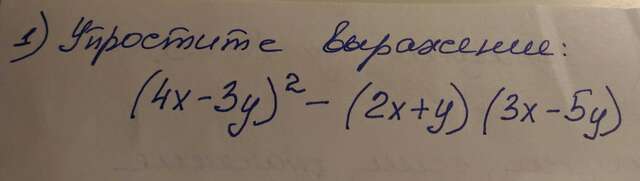 1) Упростите выражение:
(4x-3y)² - (2x+y) (3x-5y)